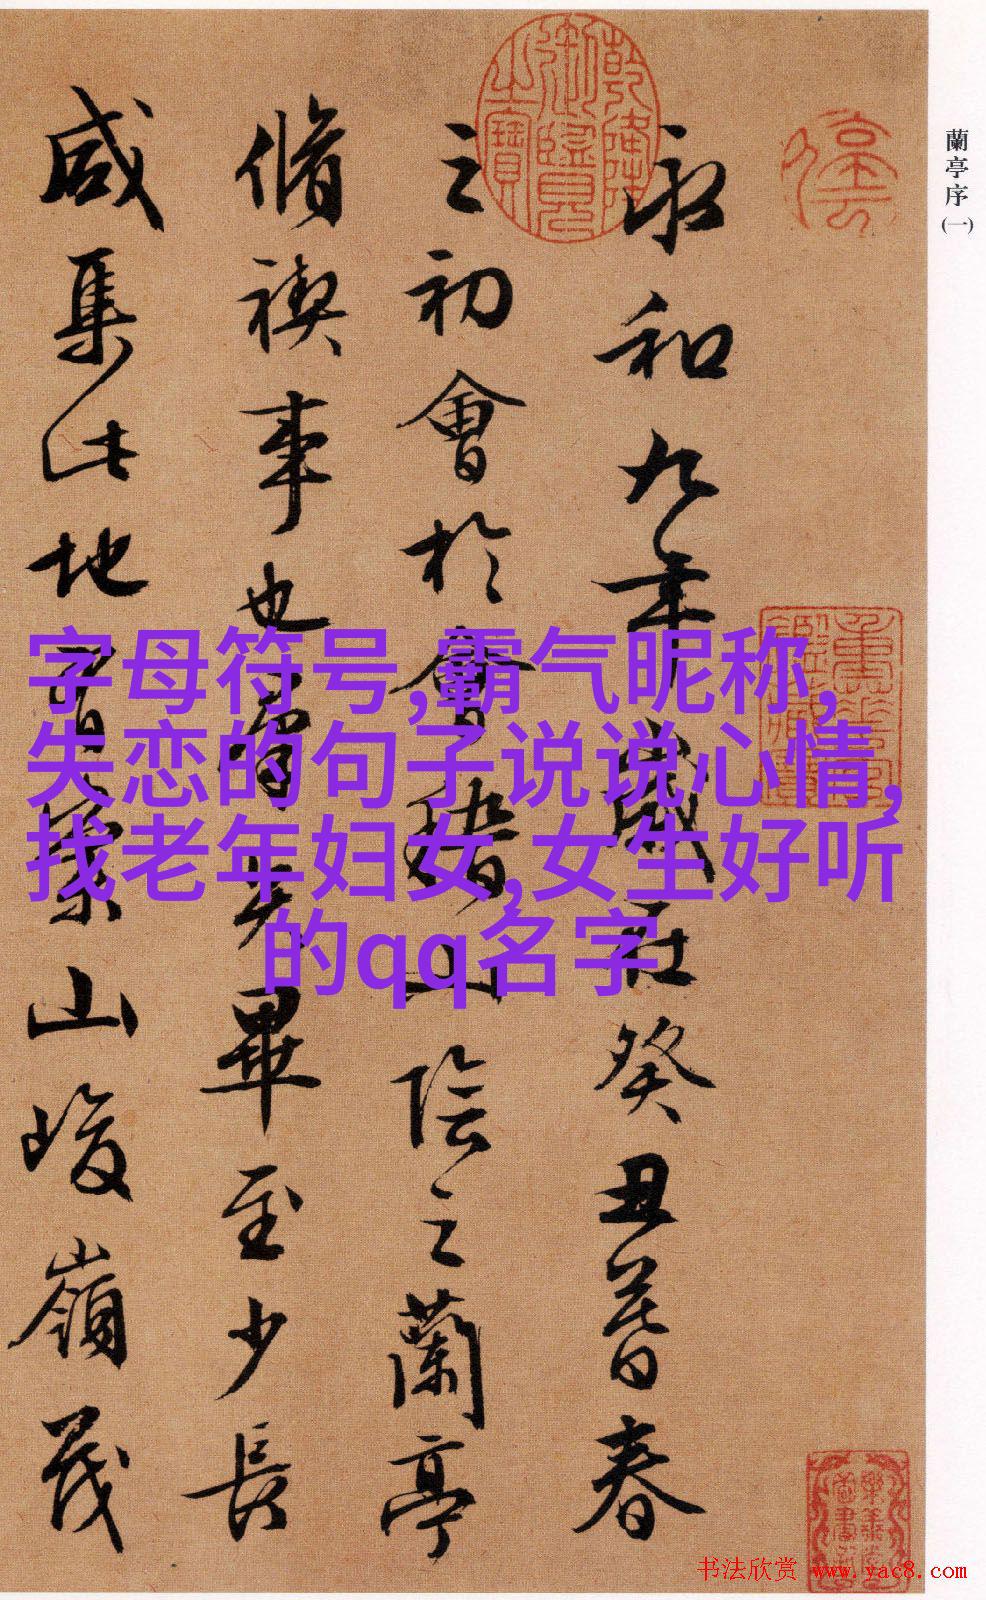 蘭亭序
(一)
永和九年歲在癸丑暮春
之初會於會稽山陰之蘭亭
脩禊事也羣賢畢至少長
咸集此地有崇山峻嶺茂
字母符号,霸气昵称,
失恋的句子说说心情,
找老年妇女,女生好听
的qq名字
乾隆御覽之寶
书法欣赏 www.yac8.com